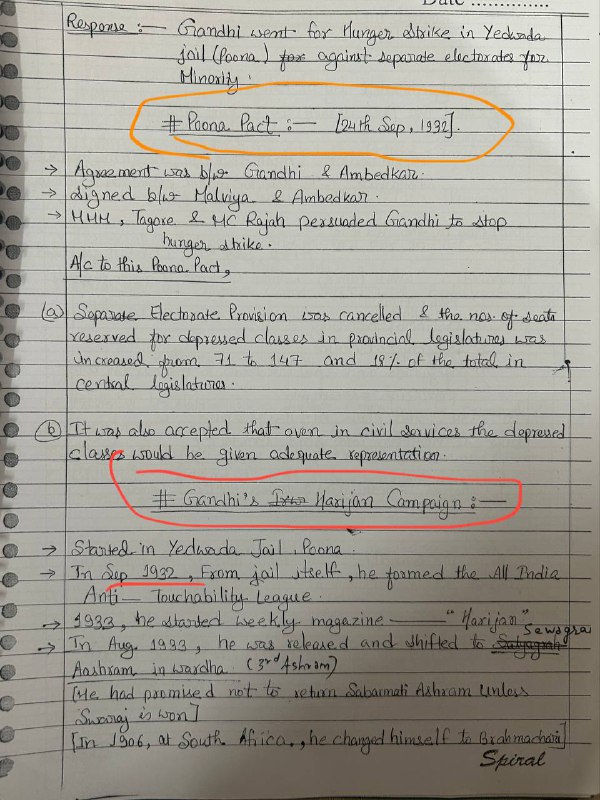 Date ..............
Response :— Gandhi went for Hunger strike in Yedwada
jail (Poona) for against separate electorates for
Minority.
# Poona Pact :— [24th Sep, 1932].
→ Agreement was b/w Gandhi & Ambedkar.
→ Signed b/w Malviya & Ambedkar.
→ MMM, Tagore & MC Rajah persuaded Gandhi to stop
hunger strike.
A/c to this Poona Pact,
(a) Separate Electorate Provision was cancelled & the nos. of seats
reserved for depressed classes in provincial legislatures was
increased from 71 to 147 and 18% of the total in
central legislatures.
(b) It was also accepted that even in civil services the depressed
classes would be given adequate representation.
# Gandhi's Harijan Campaign :—
→ Started in Yedwada Jail, Poona.
→ In Sep 1932, From jail itself, he formed the All India
Anti — Touchability League.
→ 1933, he started weekly magazine — "Harijan"
→ In Aug. 1933, he was released and shifted to Satyagrah Sewagra
Aashram in wardha. (3rd Ashram)
[He had promised not to return Sabarmati Ashram Unless
Swaraj is won]
[In 1906, at South Africa., he changed himself to Brahmachari]
Spiral